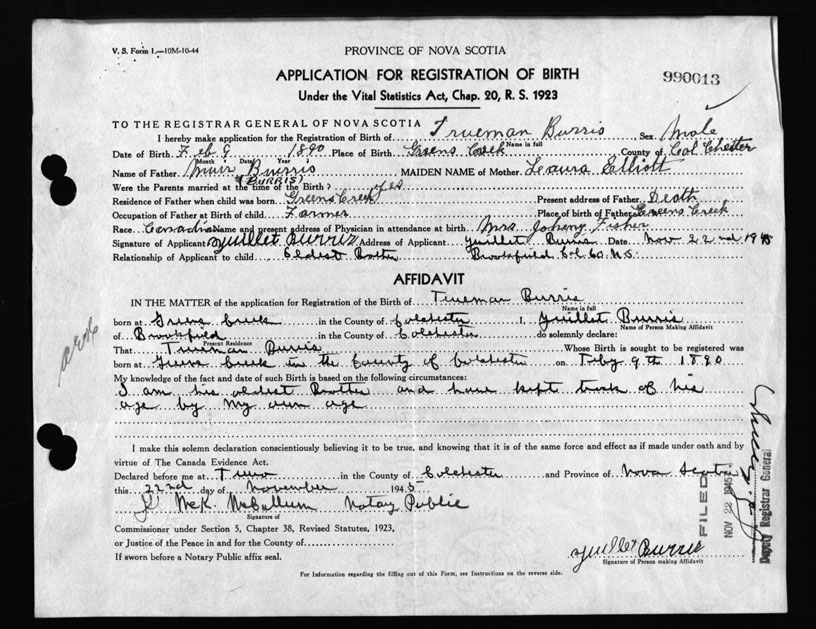 V. S. Form 1.—10M-10-44
PROVINCE OF NOVA SCOTIA
APPLICATION FOR REGISTRATION OF BIRTH
Under the Vital Statistics Act, Chap. 20, R. S. 1923
990013
TO THE REGISTRAR GENERAL OF NOVA SCOTIA
I hereby make application for the Registration of Birth of Trueman Burris Sex Male
Name in full
Date of Birth Feb 9 1890 Place of Birth Greens Creek County of Col Chester
Month Date Year
Name of Father Burris MAIDEN NAME of Mother Leaura Elliott
(BURRIS)
Were the Parents married at the time of the Birth? yes
Residence of Father when child was born Greens Creek Present address of Father Death
Occupation of Father at Birth of child Farmer Place of birth of Father Greens Creek
Race Canadian Name and present address of Physician in attendance at birth Mrs Joheny Fisher
Signature of Applicant Yuillet Burris Address of Applicant Yuillet Burris Date Nov 22nd 1945
Relationship of Applicant to child Eldest Brother Brookfield Col. Co. N.S.
AFFIDAVIT
IN THE MATTER of the application for Registration of the Birth of Trueman Burris
Name in full
born at Greens Creek in the County of Colchester I, Yuillet Burris
Name of Person Making Affidavit
of Brookfield in the County of Colchester do solemnly declare:
Present Residence
That Trueman Burris Whose Birth is sought to be registered was
born at Greens Creek in the County of Colchester on Feby 9th 1890
My knowledge of the fact and date of such Birth is based on the following circumstances:
I am his oldest Brother and have kept track of his
age by my own age
I make this solemn declaration conscientiously believing it to be true, and knowing that it is of the same force and effect as if made under oath and by
virtue of The Canada Evidence Act.
Declared before me at Truro in the County of Colchester and Province of Nova Scotia
this 22nd day of November 1945
McK. McCallum Notary Public
Signature of
Commissioner under Section 5, Chapter 38, Revised Statutes, 1923,
or Justice of the Peace in and for the County of
If sworn before a Notary Public affix seal.
Yuillet Burris
Signature of Person making Affidavit
For Information regarding the filling out of this Form, see Instructions on the reverse side.
FILED
NOV 28 1945
Deputy Registrar General